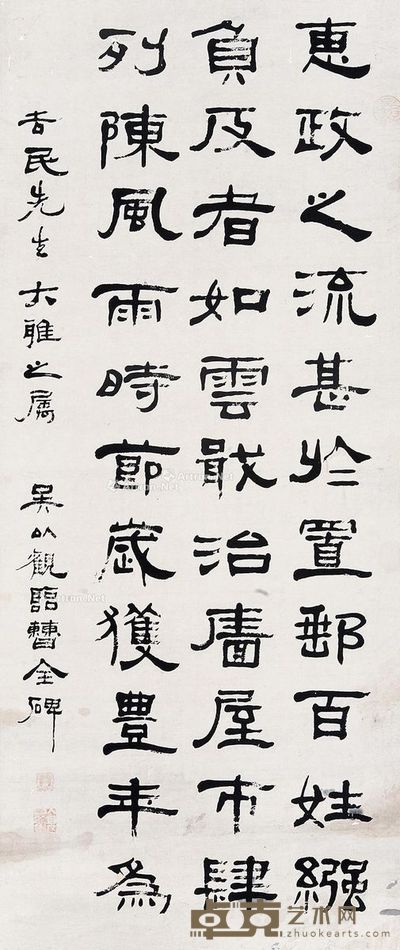 惠政之流甚於置郵百姓繦
負反者如雲戢治廧屋市肆
列陳風雨時節歲獲豐年為
吉民先生大雅之屬 吴公觀臨曹全碑
卓克艺术网
www.zhuokearts.com
Artron.Net